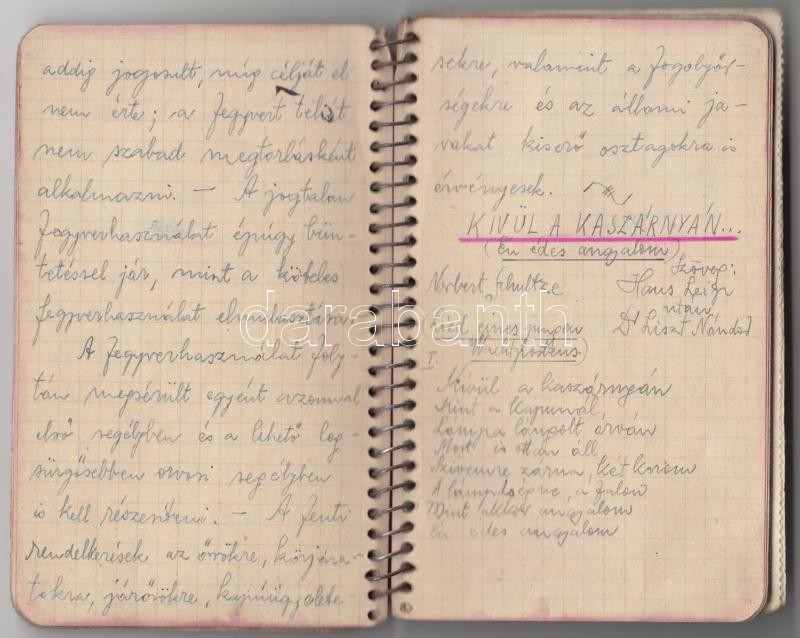 addig jogosult, míg célját el
nem érte; a fegyvert tehát
nem szabad megtorlásként
alkalmazni. — A jogtalan
fegyverhasználat épúgy bün-
tetéssel jár, mint a köteles
fegyverhasználat elmulasztása.
A fegyverhasználat foly-
tán megsérült egyént azonnal
első segélyben és a lehető leg-
sürgősebben orvosi segélyben
is kell részesíteni. — A fenti
rendelkezések az őrökre, közjára-
tokra, járőrökre, kapuügyelete-
sekre, valamint a fogolyőr-
ségekre és az állami ja-
vakat kisérő osztagokra is
érvényesek.
KIVÜL A KASZÁRNYÁN...
(Én édes angyalom)
Szöveg:
Norbert Schultze
Hans Leip
után
Dr Liszt Nándor
eines jungen
Wachtpostens)
I.
Kívül a kaszárnyán
Kint a kapunál
Lámpa lángolt árván
Most is ottan áll
Szívemre zárna, két karom
A lámpa, a falon
Mint akkor angyalom
Én édes angyalom
darabanth